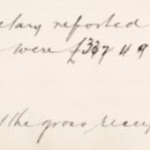 etary reported
were £337 11 9
the gross receip